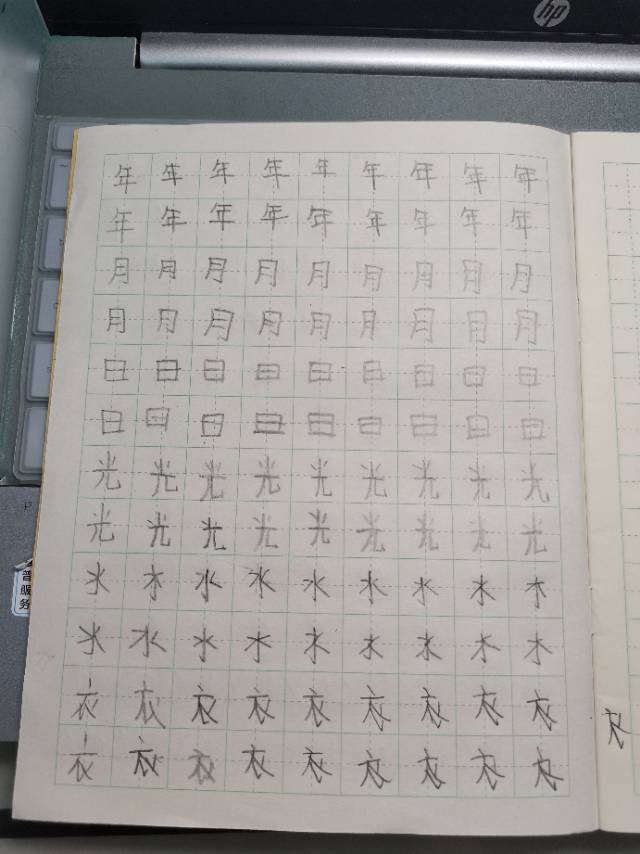 hp
年 年 年 年 年 年 年 年 年
年 年 年 年 年 年 年 年 年
月 月 月 月 月 月 月 月 月
月 月 月 月 月 月 月 月 月
日 日 日 日 日 日 日 日 日
日 日 日 日 日 日 日 日 日
光 光 光 光 光 光 光 光 光
光 光 光 光 光 光 光 光 光
水 水 水 水 水 水 水 水 水
水 水 水 水 水 水 水 水 水
衣 衣 衣 衣 衣 衣 衣 衣 衣
衣 衣 衣 衣 衣 衣 衣 衣 衣
衣